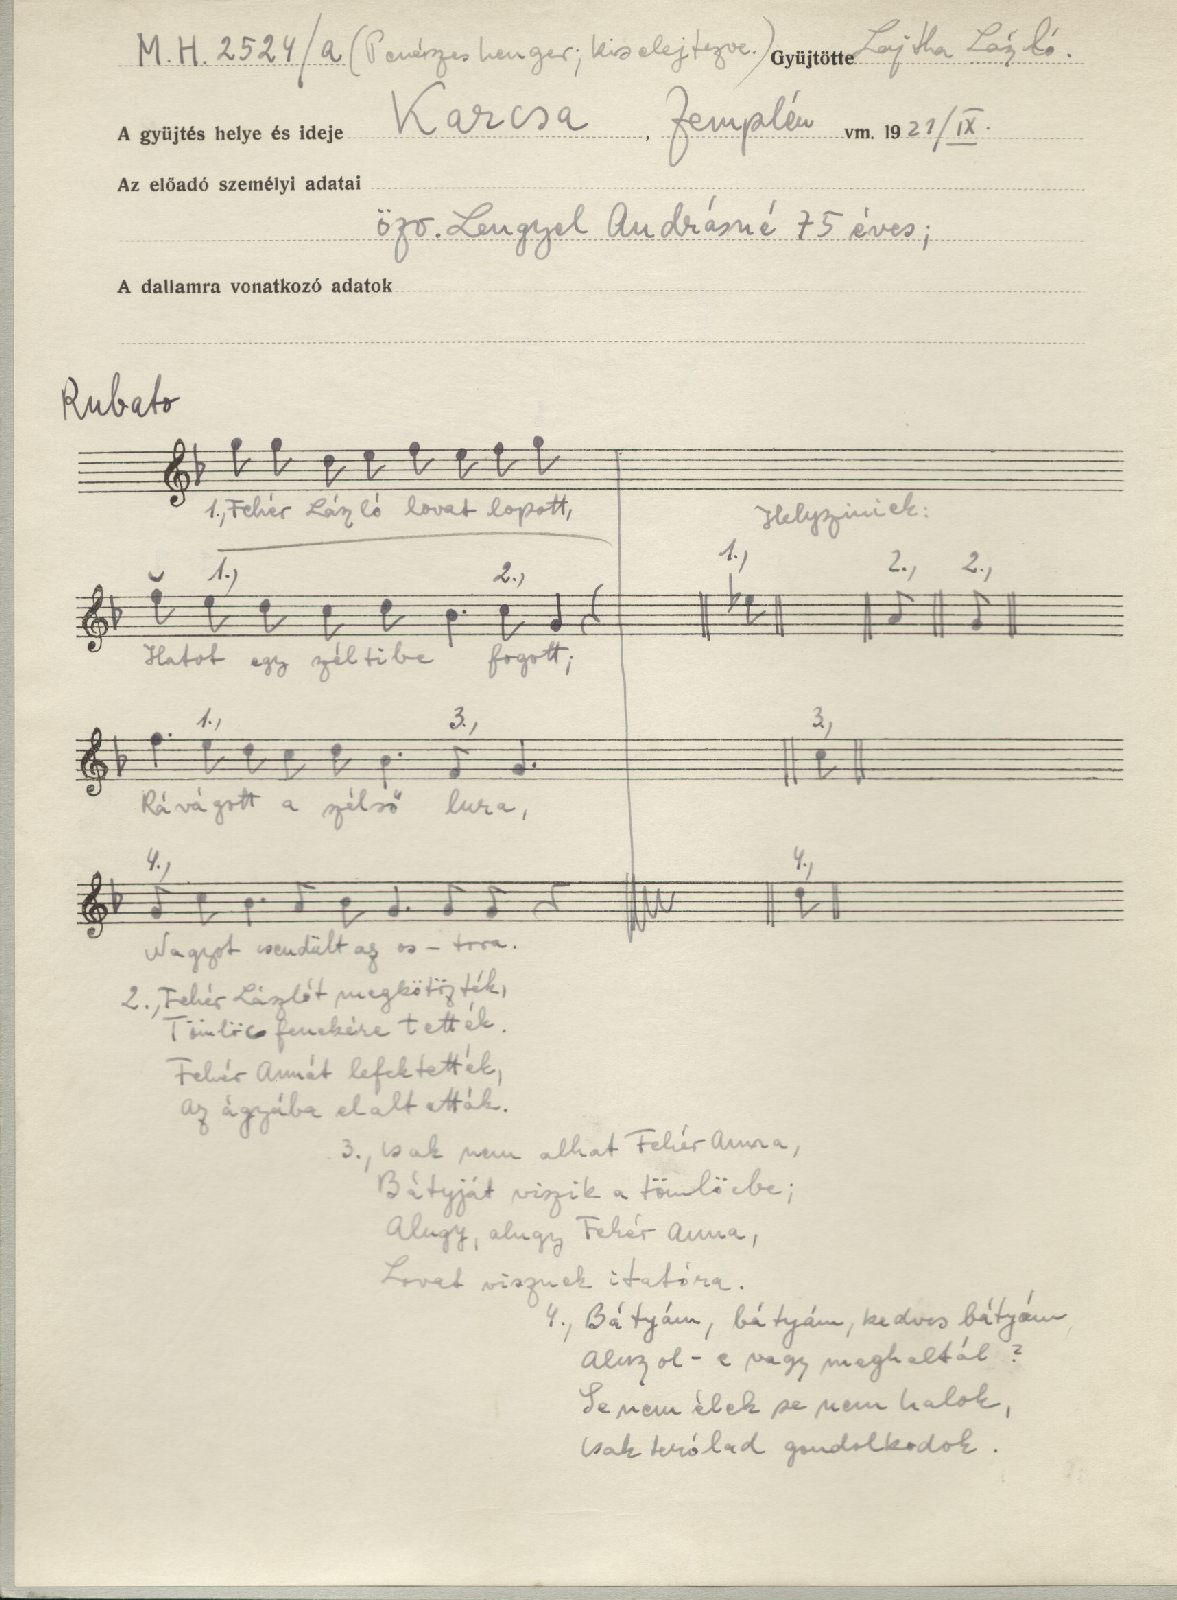 M. H. 2524/a (Penészes henger; kiselejtezve.) Gyüjtötte Lajtha László.
A gyüjtés helye és ideje Karcsa, Zemplén vm. 1921/IX.
Az előadó személyi adatai
özv. Lengyel Andrásné 75 éves;
A dallamra vonatkozó adatok
Rubato
1., Fehér László lovat lopott,
Helyszíniek:
1., 2., 1., 2., 2.,
Hatot egy zéltibe fogott;
1., 3., 3.,
Rávágott a szélső lura,
4., 4.,
Nagyot csendült az os-tora.
2., Fehér Lászlót megkötözték,
Tömlöc fenekére tették.
Fehér Annát lefektették,
Az ágyába elaltatták.
3., Csak nem alhat Fehér Anna,
Bátyját viszik a tömlöcbe;
Alugy, alugy Fehér Anna,
Lovat visznek itatóra.
4., Bátyám, bátyám, kedves bátyám,
Aluszol-e vagy meghaltál?
Se nem élek se nem halok,
Csak terólad gondolkodok.